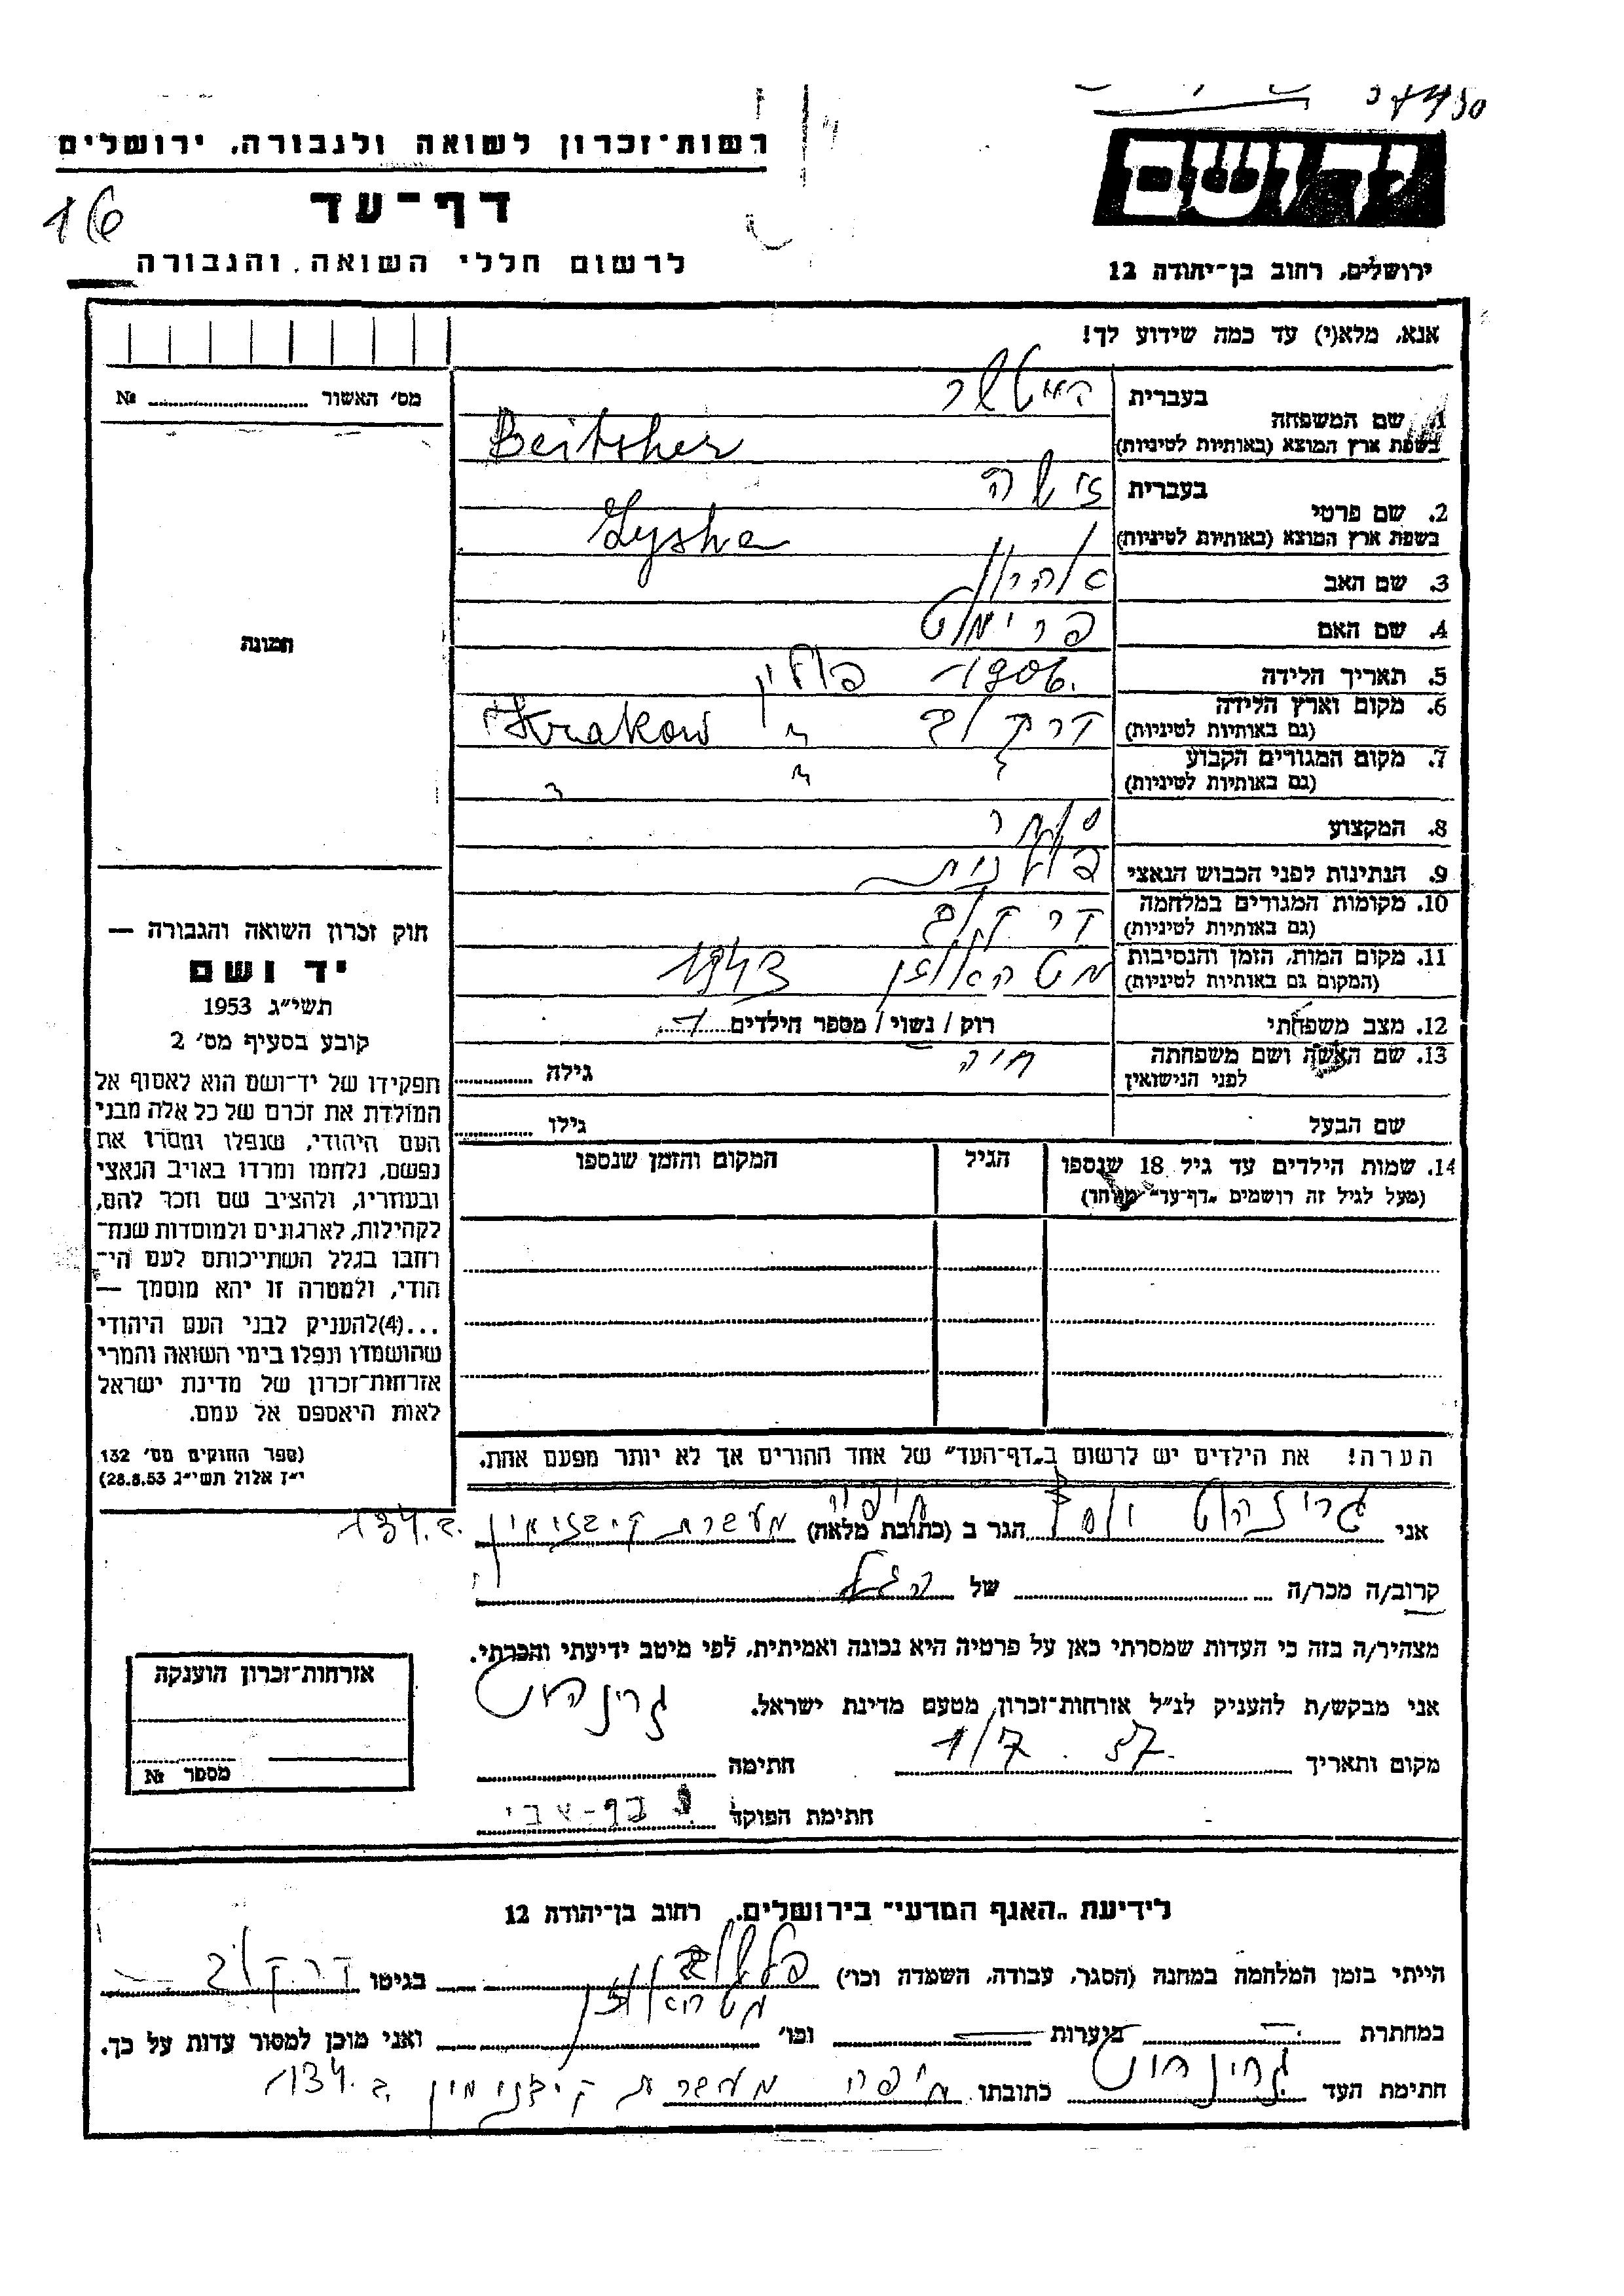 רשות־זכרון לשואה ולגבורה, ירושלים
יד ושם
16
דף־עד
לרשום חללי השואה והגבורה
ירושלים, רחוב בן־יהודה 12
אנא, מלא(י) עד כמה שידוע לך!
מס׳ האשור № ........
1. שם המשפחה
בעברית
בשפת ארץ המוצא (באותיות לטיניות) Beitsher
2. שם פרטי
בעברית זישה
בשפת ארץ המוצא (באותיות לטיניות) Zysha
3. שם האב אהרון
4. שם האם פרימט
5. תאריך הלידה 1906.
6. מקום וארץ הלידה (גם באותיות לטיניות) קרקוב פולין Krakow
7. מקום המגורים הקבוע (גם באותיות לטיניות) " " "
8. המקצוע סוחר
9. הנתינות לפני הכבוש הנאצי פולנית
10. מקומות המגורים במלחמה (גם באותיות לטיניות) קרקוב
11. מקום המות, הזמן והנסיבות (המקום גם באותיות לטיניות) מטהאוזן 1943
12. מצב משפחתי רוק / נשוי / מספר הילדים 1
13. שם האשה ושם משפחתה לפני הנישואין חיה גילה ........
שם הבעל גילו ........
14. שמות הילדים עד גיל 18 שנספו (מעל לגיל זה רושמים „דף־עד” מיוחד)
הגיל
המקום והזמן שנספו
תמונה
חוק זכרון השואה והגבורה —
יד ושם
תשי״ג 1953
קובע בסעיף מס׳ 2
תפקידו של יד־ושם הוא לאסוף אל
המולדת את זכרם של כל אלה מבני
העם היהודי, שנפלו ומסרו את
נפשם, נלחמו ומרדו באויב הנאצי
ובעוזריו, ולהציב שם וזכר להם,
לקהילות, לארגונים ולמוסדות שנח־
רחבו בגלל השתייכותם לעם הי־
הודי, ולמטרה זו יהא מוסמך —
...(4)להעניק לבני העם היהודי
שהושמדו ונפלו בימי השואה והמרי
אזרחות־זכרון של מדינת ישראל
לאות היאספם אל עמם.
(ספר החוקים מס׳ 132
י״ז אלול תשי״ג 28.8.53)
הערה! את הילדים יש לרשום ב„דף־העד” של אחד ההורים אך לא יותר מפעם אחת.
אני גרינהוט הגר ב (כתובת מלאה) חיפה מעברת קישון ב. 134
קרוב/ה מכר/ה ........ של ........
מצהיר/ה בזה כי העדות שמסרתי כאן על פרטיה היא נכונה ואמיתית, לפי מיטב ידיעתי והכרתי.
אני מבקש/ת להעניק לנ״ל אזרחות־זכרון מטעם מדינת ישראל.
מקום ותאריך 1/7.57. חתימה גרינהוט
חתימת הפוקד
אזרחות־זכרון הוענקה
מספר №
לידיעת „האגף המדעי” בירושלים, רחוב בן־יהודה 12
הייתי בזמן המלחמה במחנה (הסגר, עבודה, השמדה וכו׳) פלשוב מטהאוזן בגיטו קרקוב
במחתרת — ביערות — וכו׳ ........ ואני מוכן למסור עדות על כך.
חתימת העד גרינהוט כתובתו חיפה מעברת קישון ב. 134